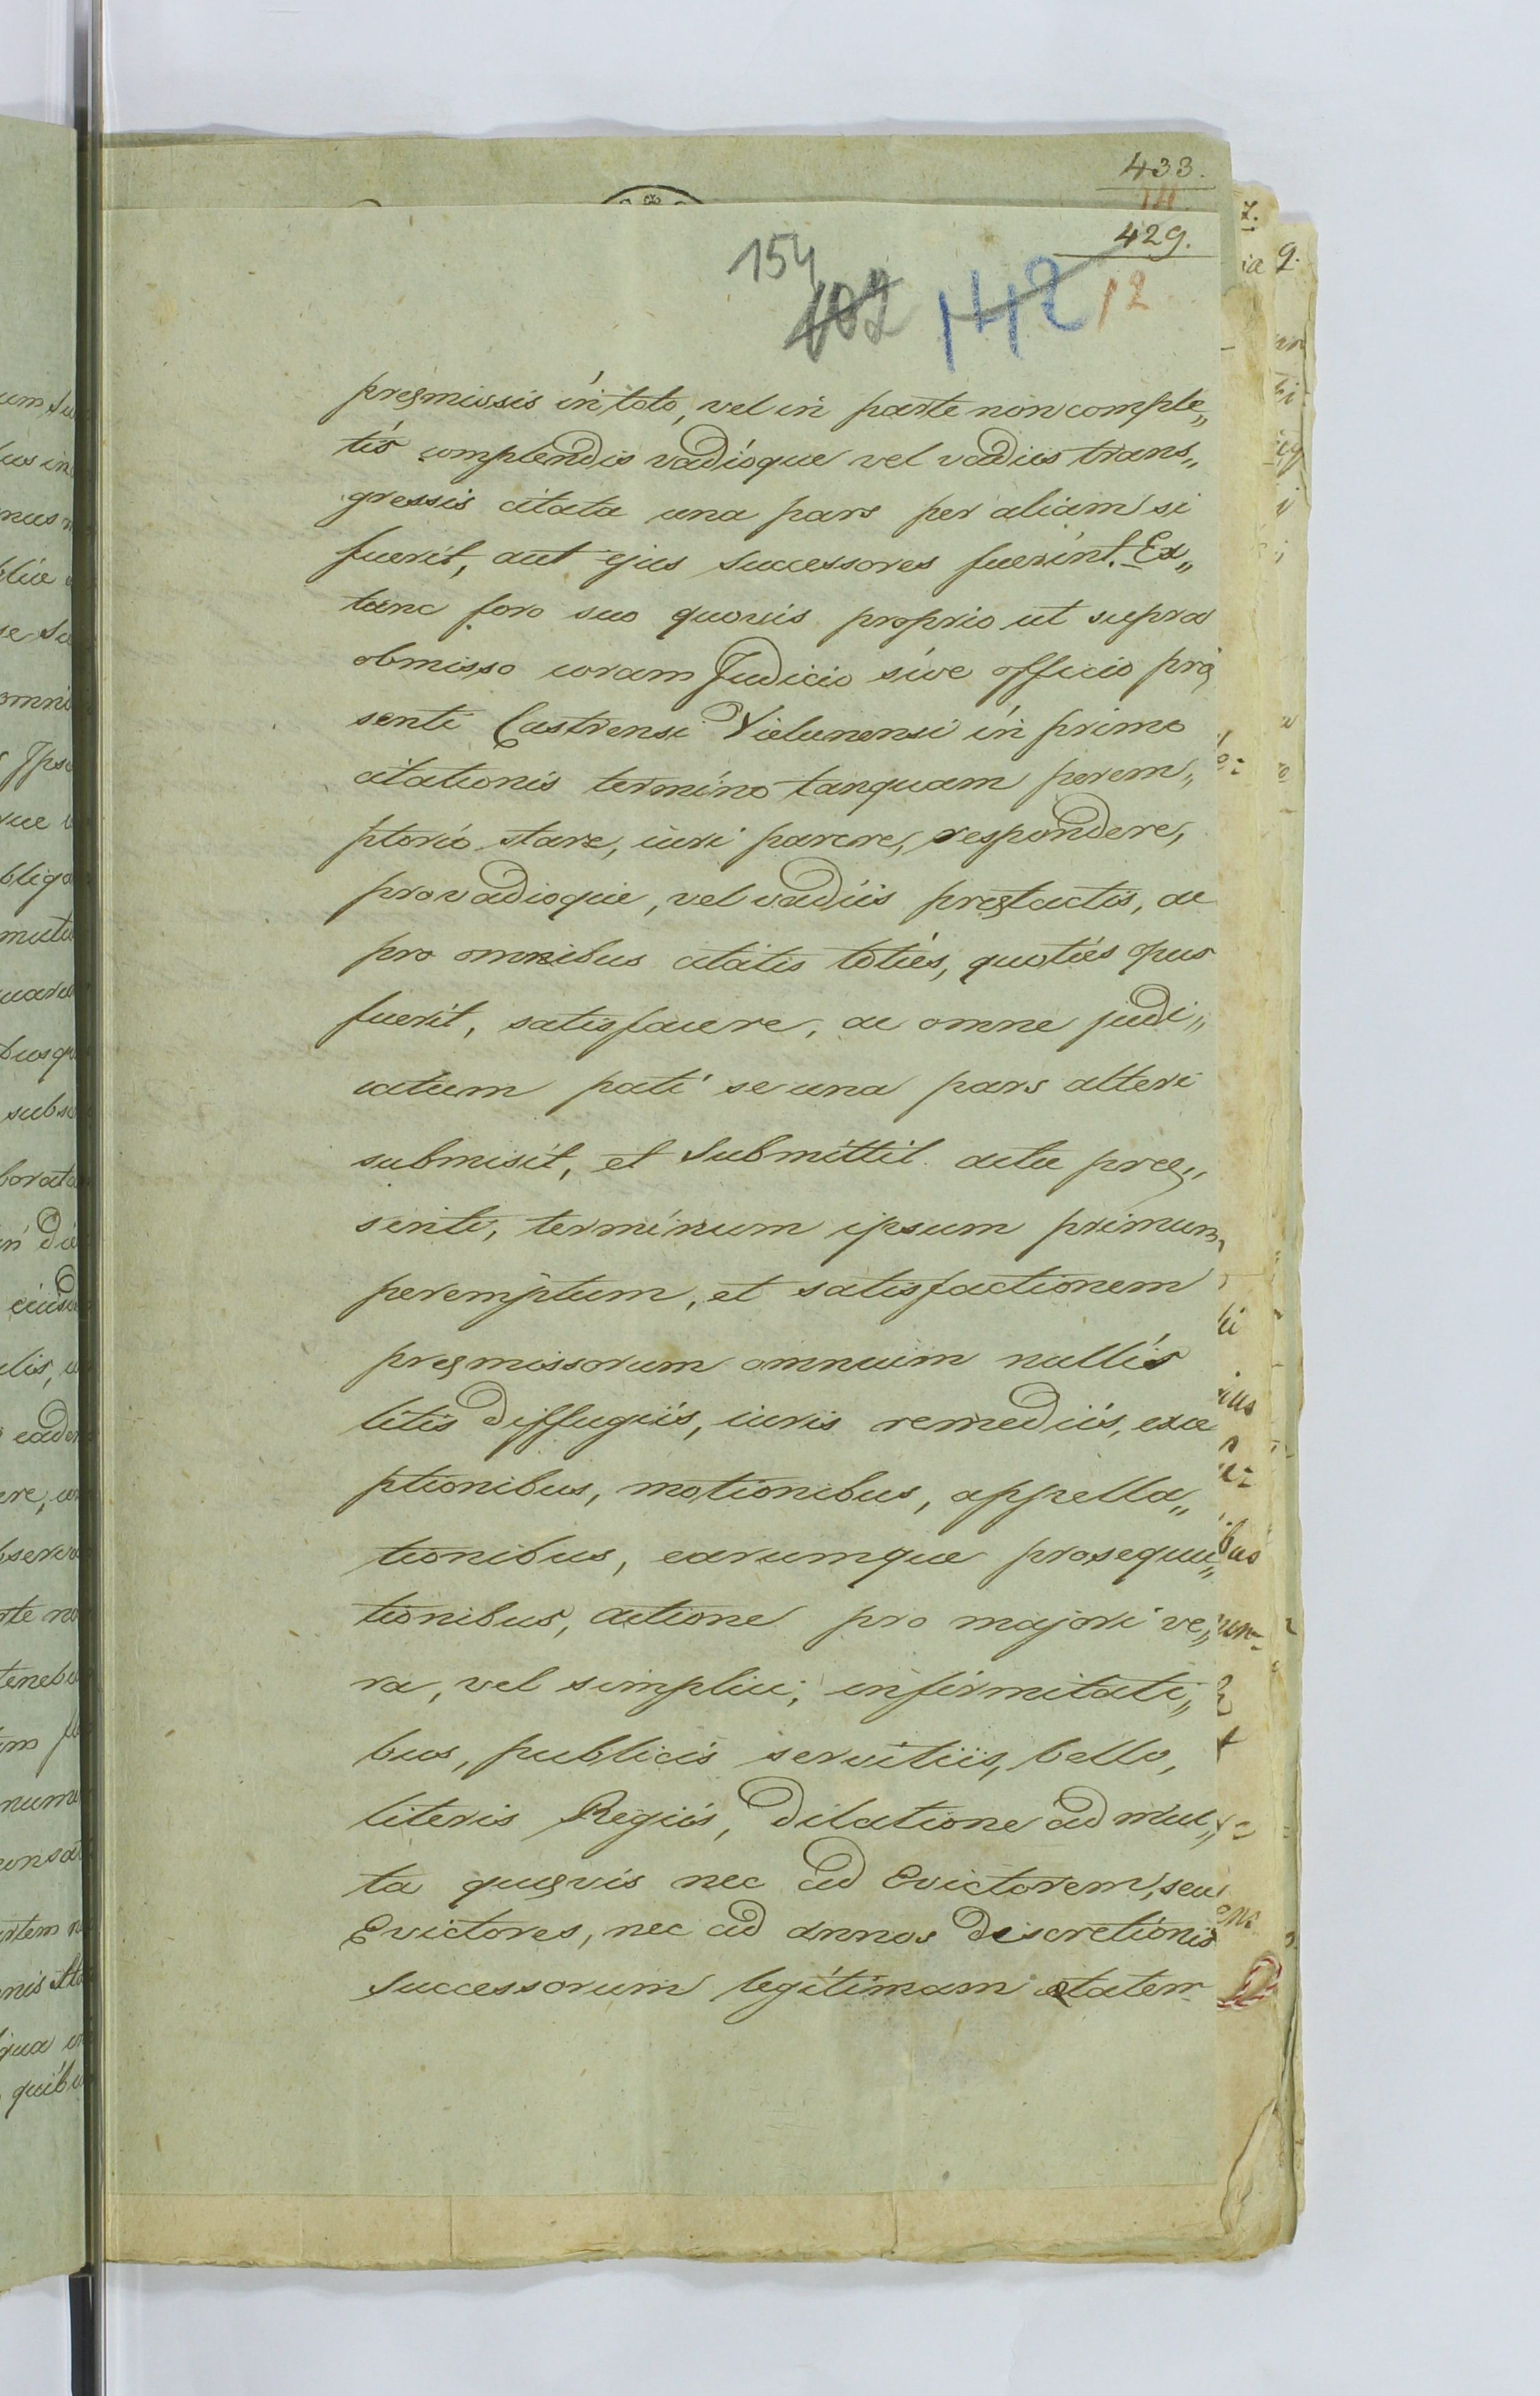 433.
429.
154
102 142 12
pręmissis in toto, vel in parte non comple„
tis complendis vadioque vel vadiis trans„
gressis citata una pars per aliam si
fuerit, aut ejus Successores fuerint. Ex„
tunc foro suo quovis proprio ut supra
obmisso coram Judicio sive officio prę
senti Castrensi Vielunensi in primo
citationis termino tanquam perem„
ptorio stare, iuri parere, respondere,
pro vadioque, vel vadiis pręstactis, ac
pro omnibus citatis toties, quoties opus
fuerit, satisfacere, ac omne judi„
catum pati se una pars alteri
submisit, et Submittit actu prę„
senti, terminum ipsum primum
peremptum, et satisfactionem
pręmissorum omnium nullis
litis diffugiis, iuris remediis, exce
ptionibus, motionibus, appella„
tionibus, earumque prosequu„
tionibus, actione pro majori ve„
ra, vel simplici, infirmitati„
bus, publicis servitiis, bello,
literis Regiis, dilatione ad mul„
ta quęvis nec ad Evictorem, seu
Evictores, nec ad annos discretionis
Successorum legitimam ętatem